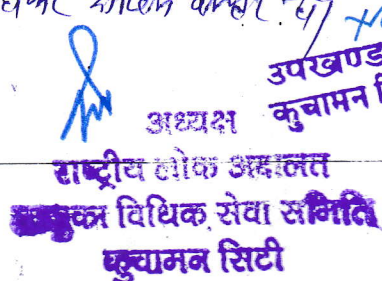 उपखण्ड
कुचामन
अध्यक्ष
राष्ट्रीय लोक अदालत
विधिक सेवा समिति
कुचामन सिटी